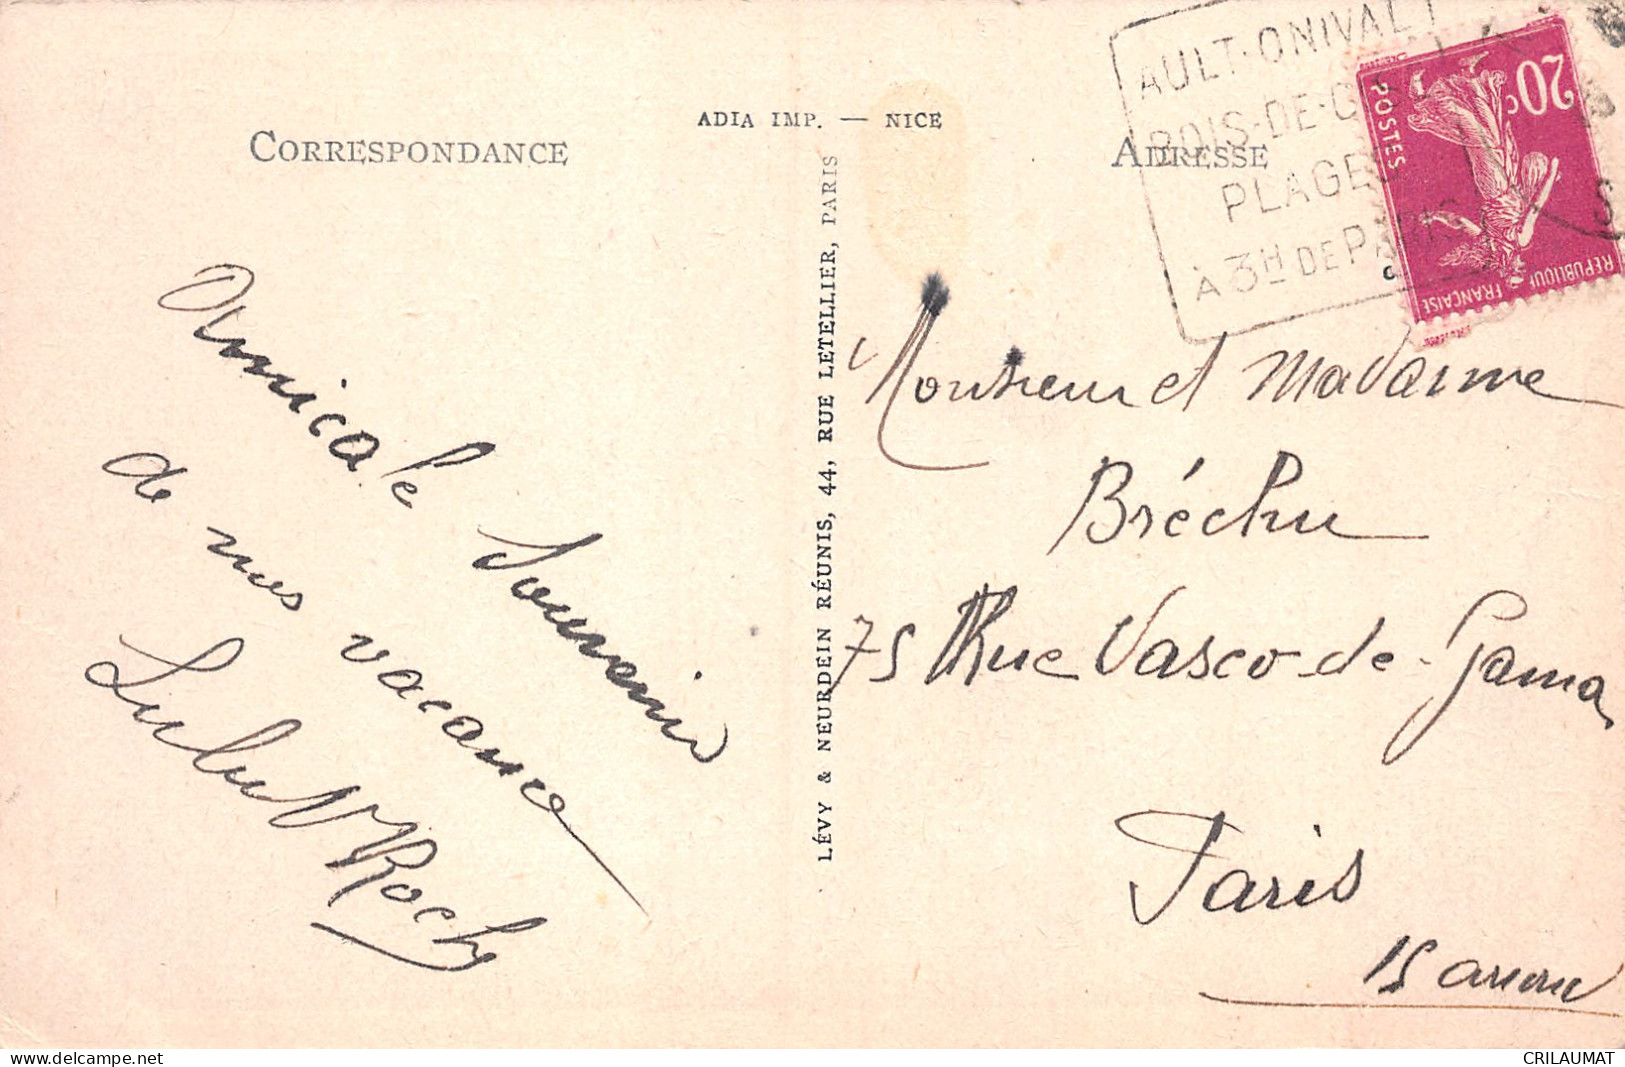 CORRESPONDANCE
ADIA IMP. — NICE
ADRESSE
AULT-ONIVAL
BOIS-DE-CISE
PLAGES
À 3H DE PARIS
20c
POSTES
RÉPUBLIQUE
FRANÇAISE
LÉVY & NEURDEIN RÉUNIS, 44, RUE LETELLIER, PARIS
Amicale Souvenir
de nos vacance
Roch
Monsieur et Madame
Bréchu
75 Rue Vasco-de-Gama
Paris
15 arron
delcampe.net
CRILAUMAT